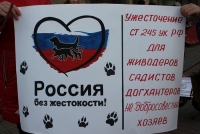 Россия
без жестокости!
Ужесточение
СТ 245 УК РФ
ДЛЯ
ЖИВОДЕРОВ
САДИСТОВ
ДОГХАНТЕРОВ
НЕ ДОБРОСОВЕСТНЫХ
ХОЗЯЕВ